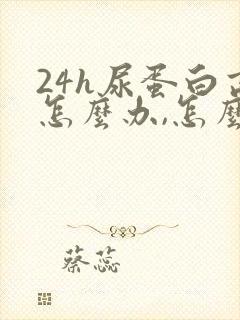 24h尿蛋白
怎麼办,怎麼
蔡蕊